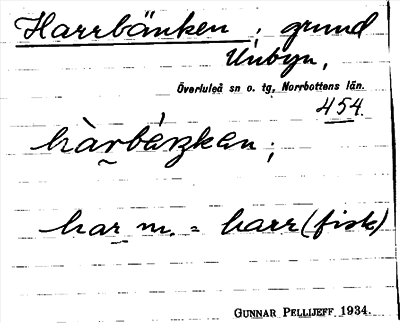 Harrbänken, grund
Unbyn,
Överluleå sn o. tg, Norrbottens län.
454.
hàrbáŋkən;
har m. = harr (fisk)
GUNNAR PELLIJEFF 1934.